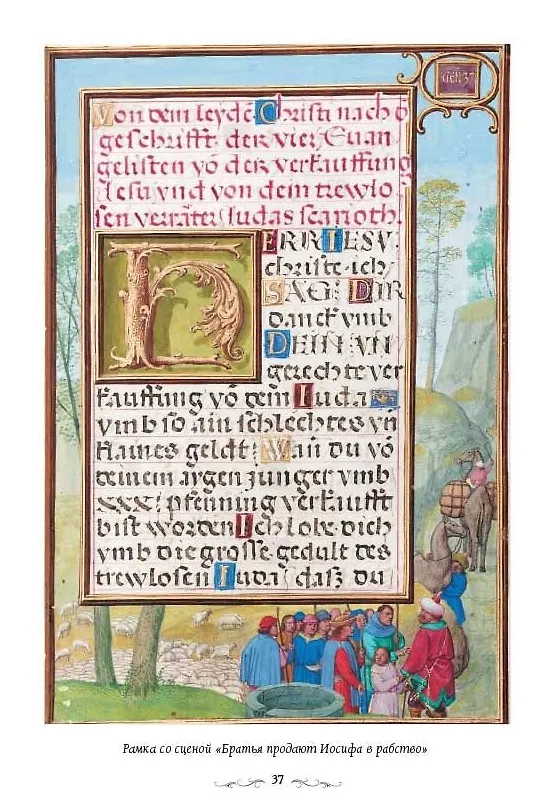 GEN37
Von dem leydē Christi nach ð
geschrifft der vier Euan
gelisten vō der verkauffung
Iesu vnd von dem trewlo
sen verräter Iudas scarioth.
HERR IESV
christe ich
SAG DIR
danck vmb
DEIN VN
gerechte ver
kauffung vō dem Iuda
vmb so ain schlechtes vñ
klaines geldt Wañ du vō
deinem argen Junger vmb
XXX pfenning verkaufft
bist worden Ich lobe dich
vmb die grosse gedult des
trewlosen Iuda das du
Рамка со сценой «Братья продают Иосифа в рабство»
37